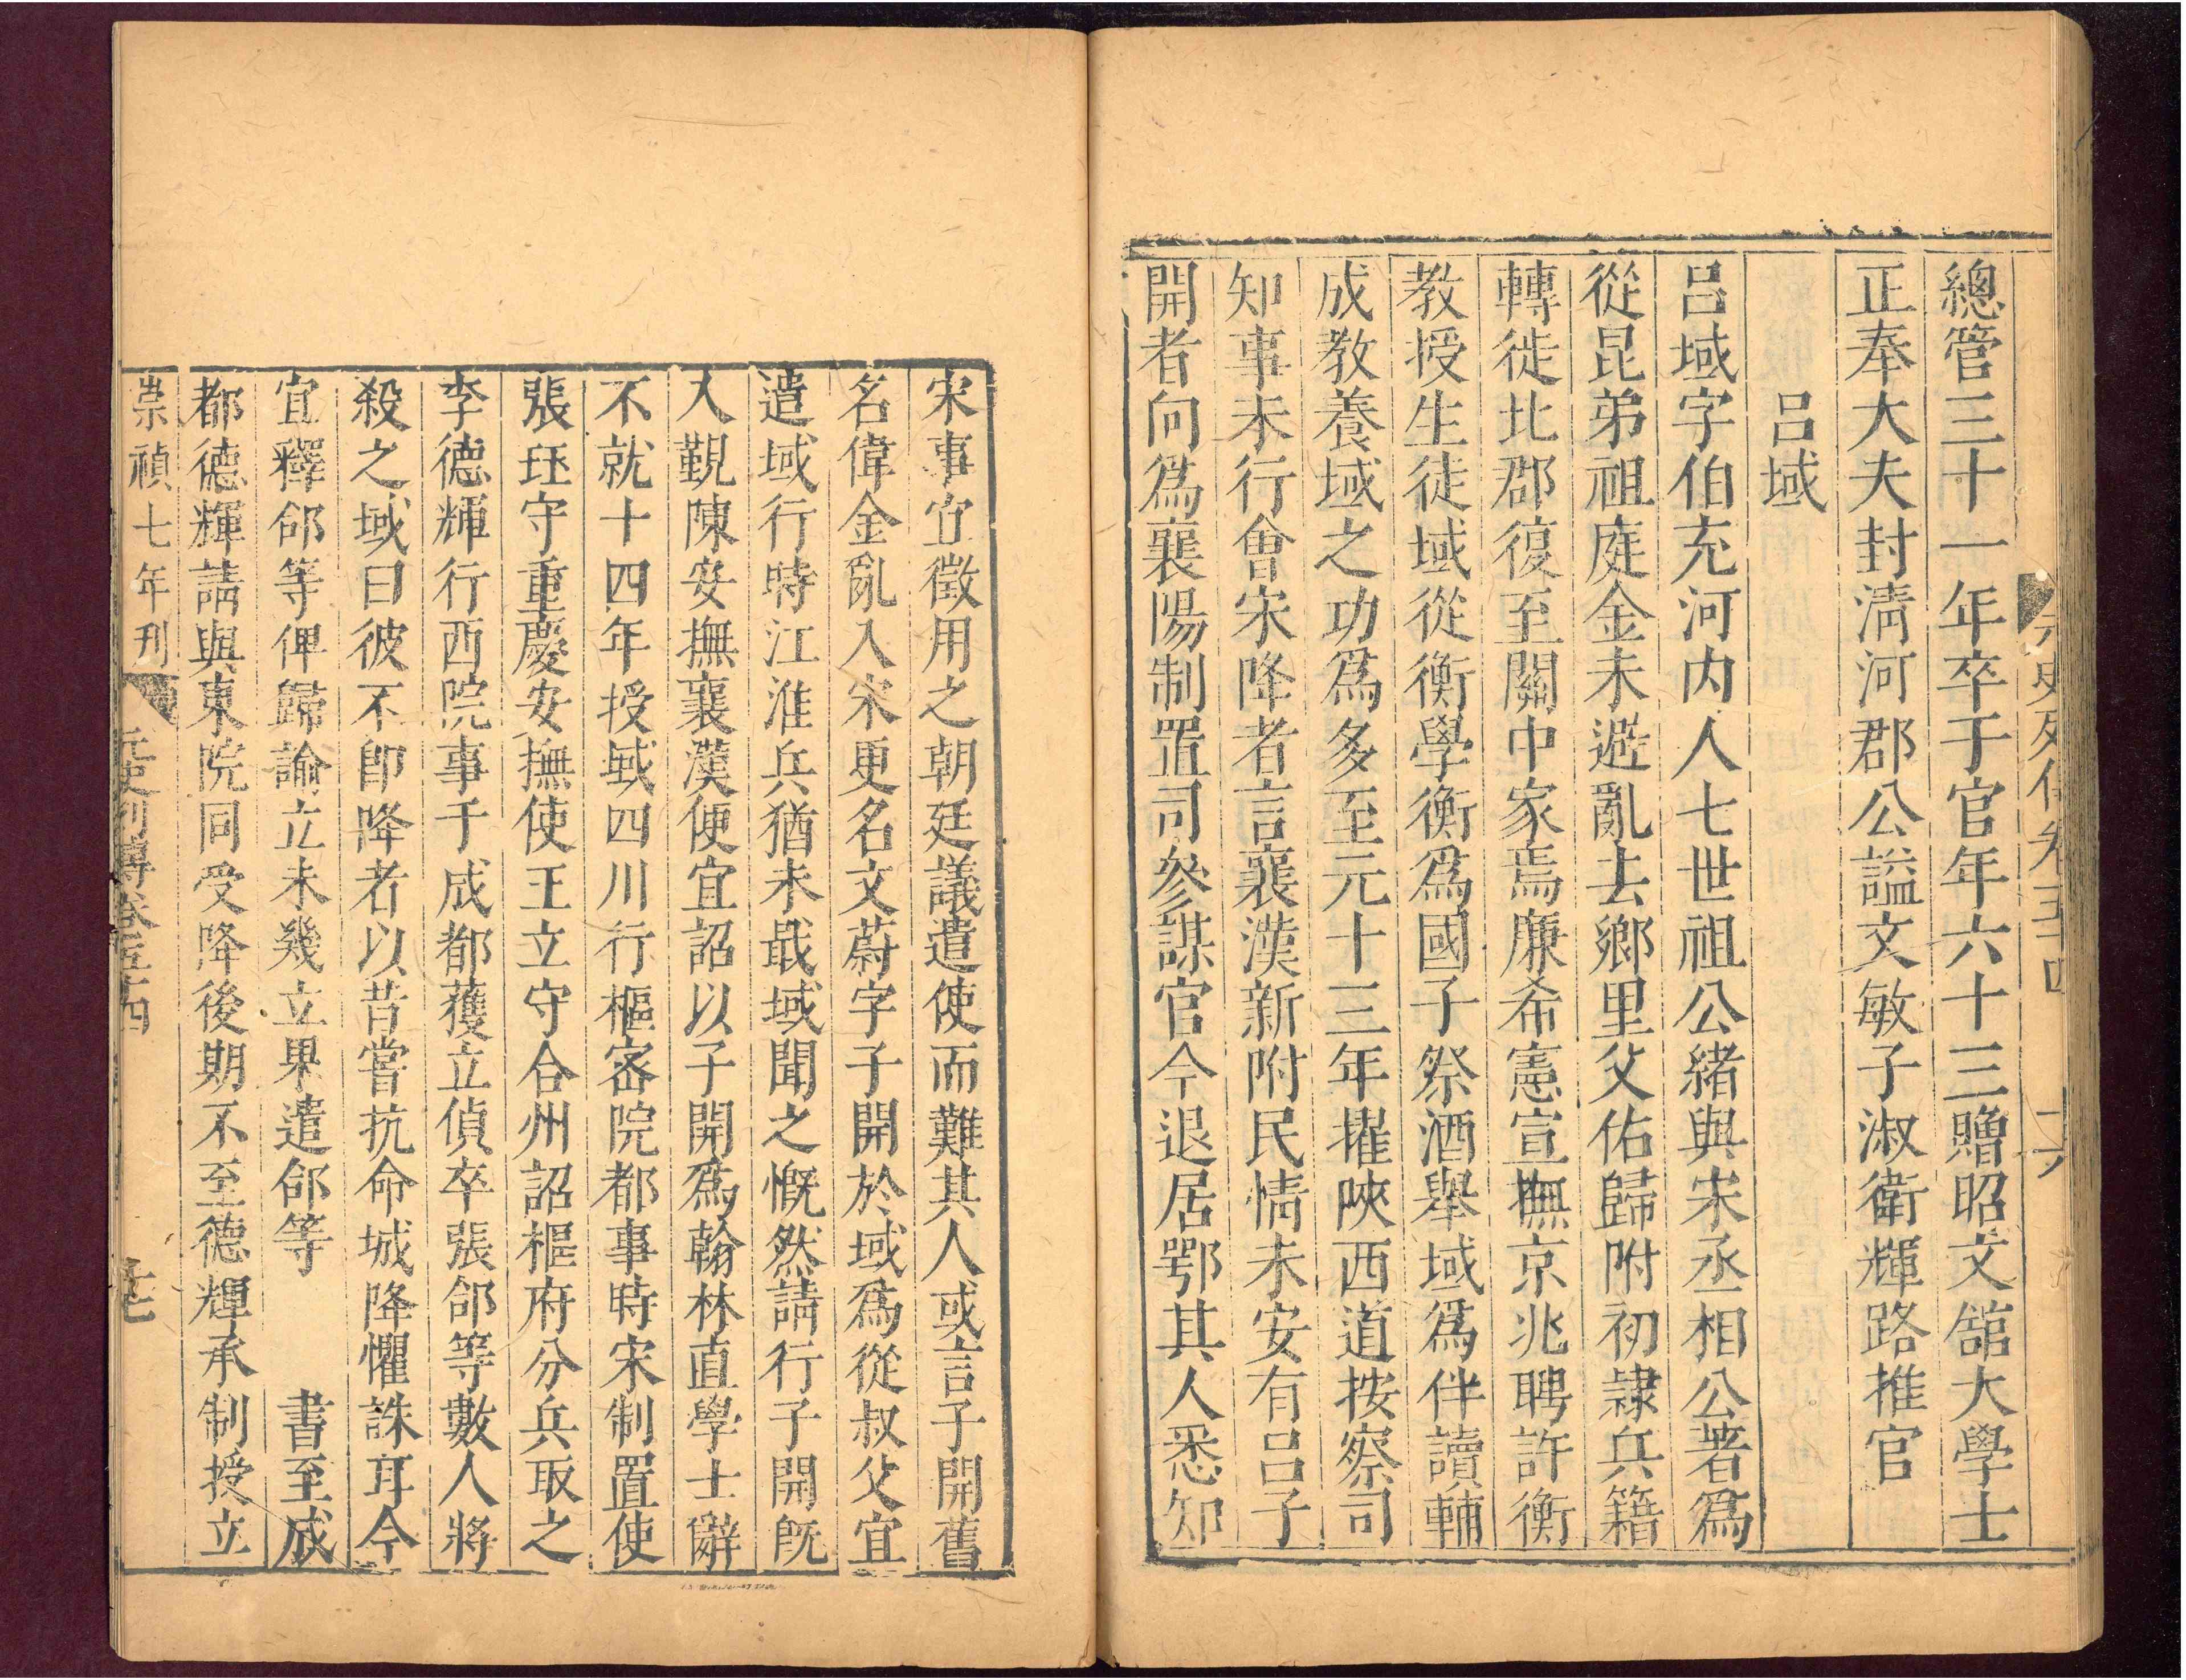 總管三十一年卒于官年六十三贈昭文舘大學士
正奉大夫封清河郡公謚文敏子淑衛輝路推官
呂域
呂域字伯充河内人七世祖公緒與宋丞相公著爲
從昆弟祖庭金末避亂去鄉里父佑歸附初隷兵籍
轉徙北郡復至關中家焉廉希憲宣撫京兆聘許衡
教授生徒域從衡學衡爲國子祭酒舉域爲伴讀輔
成教養域之功爲多至元十三年擢陜西道按察司
知事未行會宋降者言襄漢新附民情未安有呂子
開者向爲襄陽制置司參謀官今退居鄂其人悉知
宋事宜徵用之朝廷議遣使而難其人或言子開舊
名偉金亂入宋更名文蔚字子開於域爲從叔父宜
遣域行時江淮兵猶未戢域聞之慨然請行子開旣
入覲陳安撫襄漢便宜詔以子開爲翰林直學士辭
不就十四年授域四川行樞密院都事時宋制置使
張珏守重慶安撫使王立守合州詔樞府分兵取之
李德輝行西院事于成都獲立偵卒張郃等數人將
殺之域曰彼不卽降者以昔嘗抗命城降懼誅耳今
宜釋郃等俾歸諭立未幾立果遣郃等 書至成
都德輝請與東院同受降後期不至德輝承制授立
崇禎七年刊 元史列傳卷五十四 十七